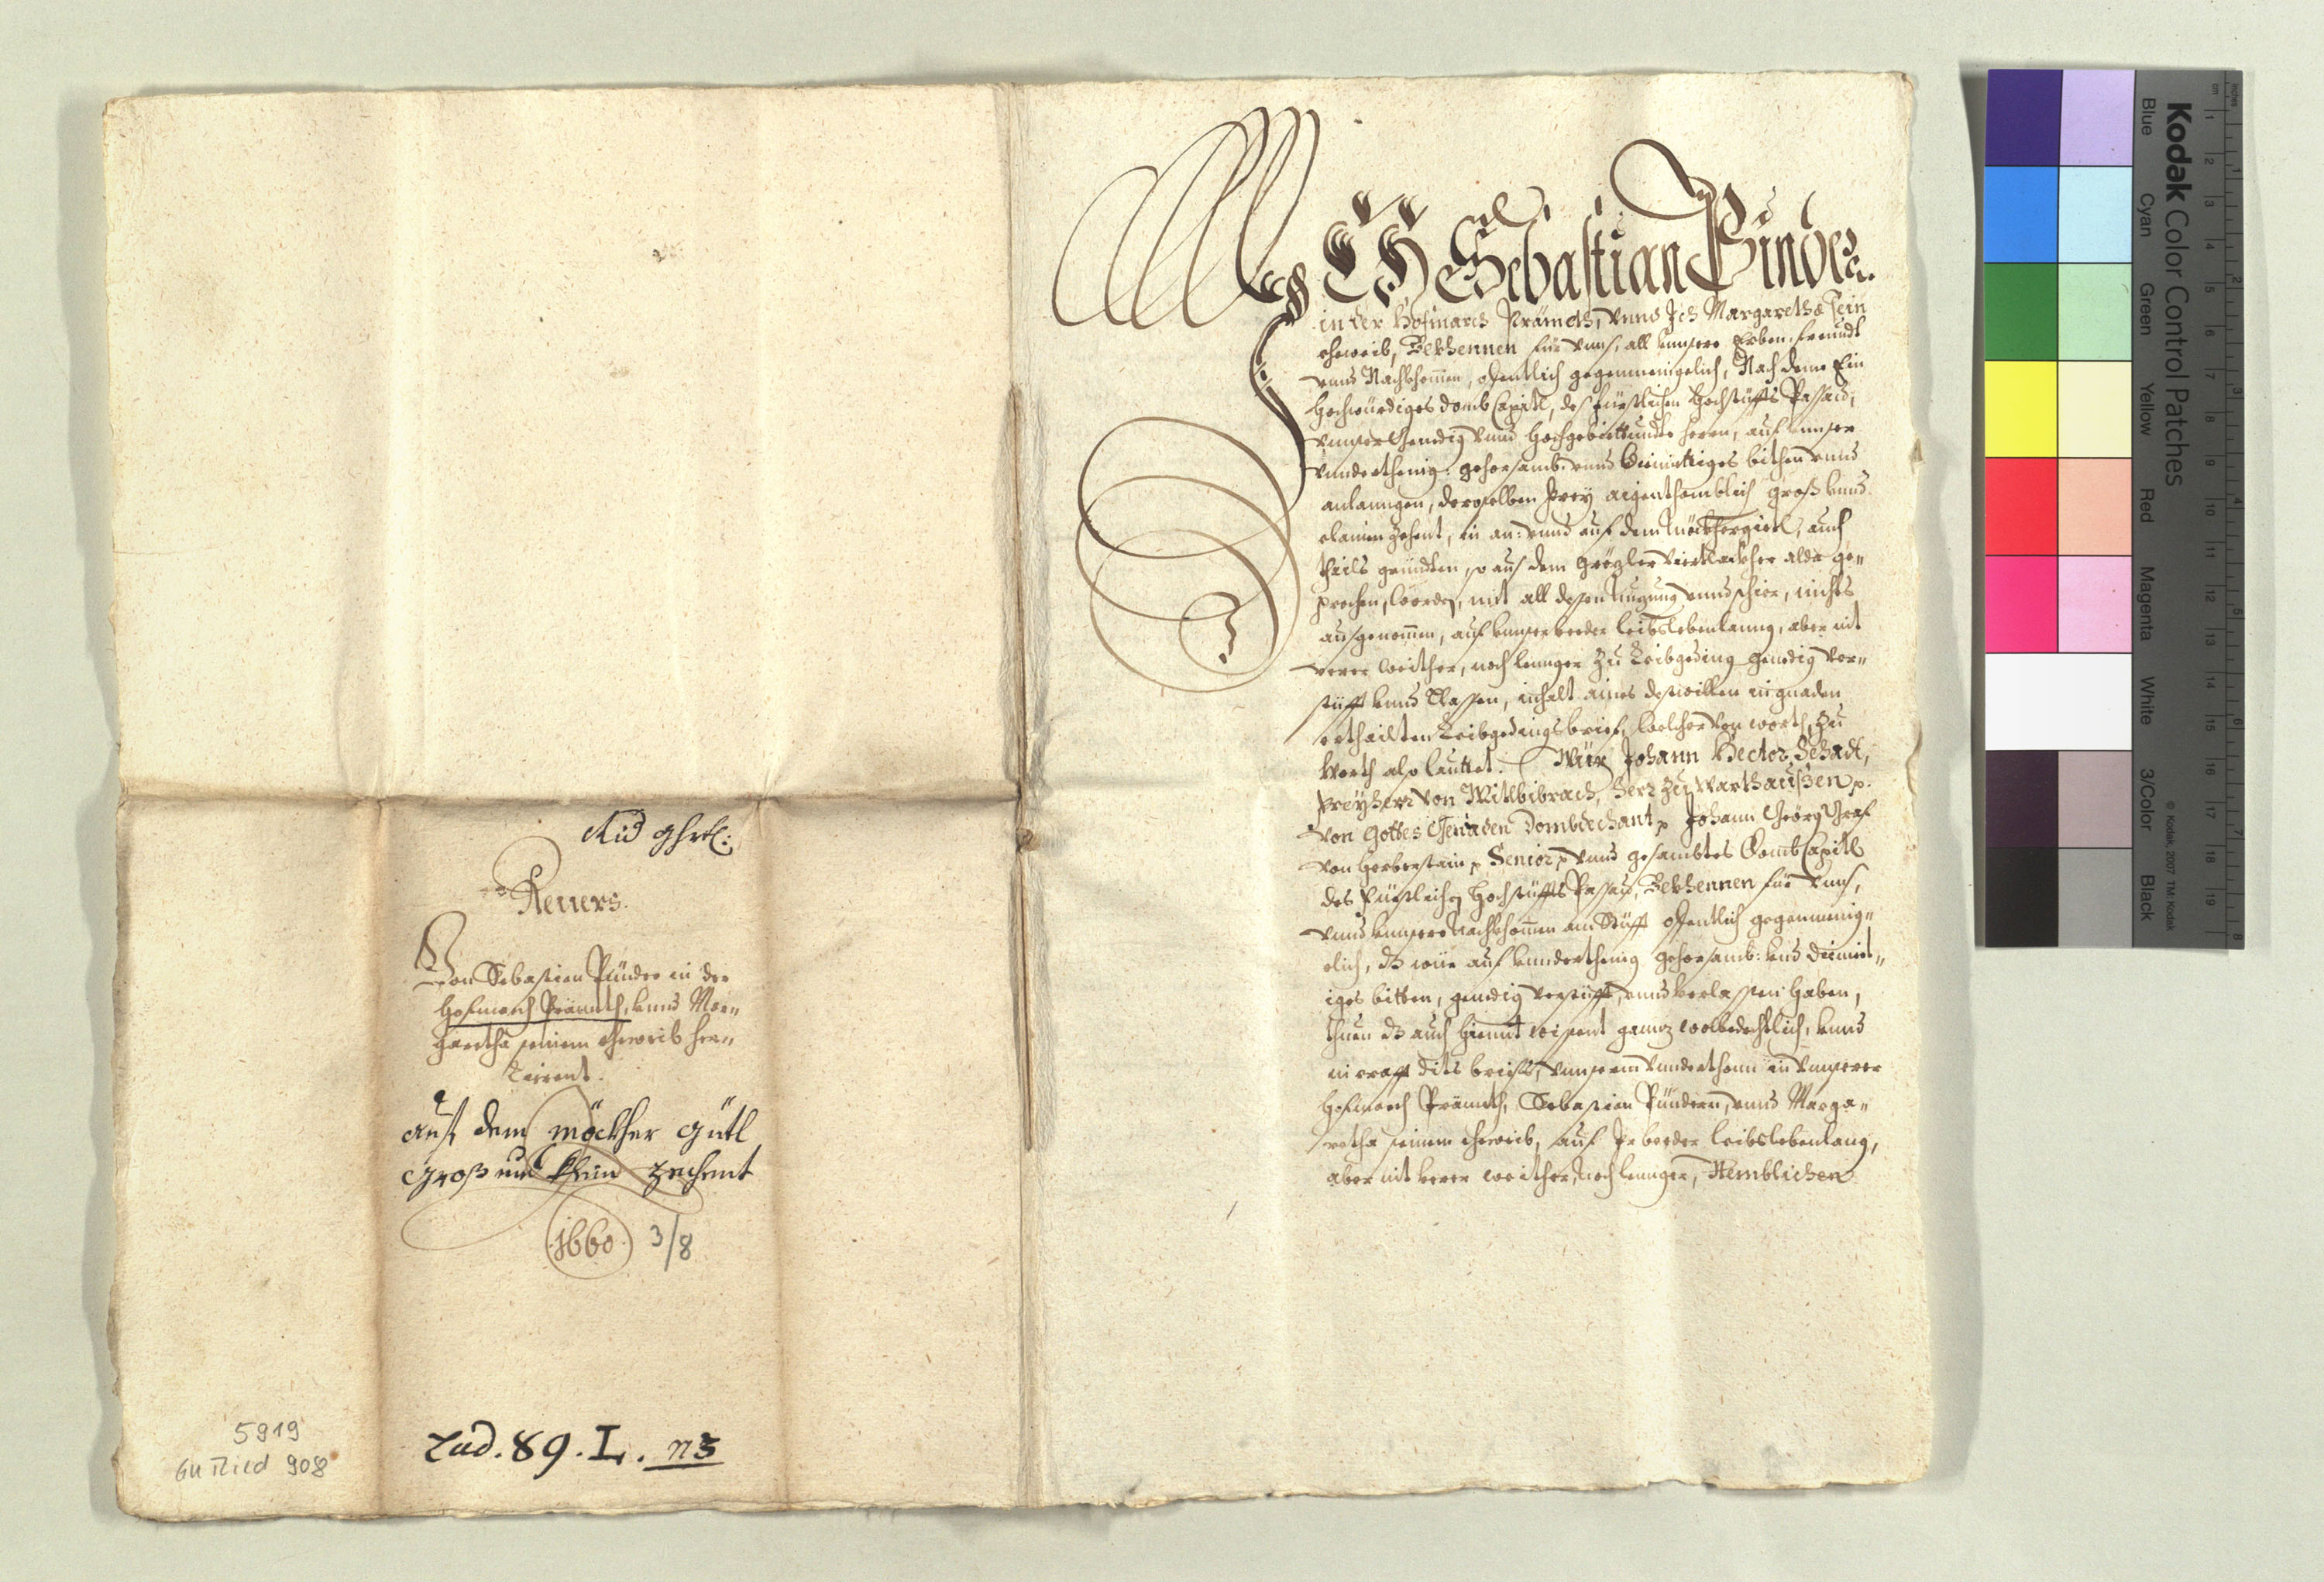 Rid ghrl:
Reuers.
Von Sebastian Pündter in der
Hofmarch Prämeth, vnnd Mar„
garetha seinem Eheweib her„
rierent.
auß dem möckher gütl
groß und khlein zechent
1660 3/8
Lad. 89. L. n3
5919
GU Ried 908
ICH Sebastian Pinder
in der Hofmarch Prämeth, vnnd Ich Margaretha sein
eheweib, Bekhennen für vnnß, all vnnsere Erben, freundt
vnnd Nachkhomen, offentlich gegenmenigelich, Nach deme Ein
Hochwürdiges Domb Capitl, des fürstlichen Hochstüffts Passau,
vnnser Genedig vnnd Hochgebiettundte Herrn, auf vnnser
vnnderthenig: gehorsamb: vnnd diemüettiges bithen vnnd
anlanngen, derselben Frey aigenthomblich groß vnnd
clainen zehent, in an: vnnd auf dem Möckhergietl, auch
theils gründten, so aus dem Viertlackher alda ge„
prochen worden, mit all dessen vnnd, nichts
ausgenomen, auf vnnser beeder leibslebenlanng, aber nit
verer weither, noch lennger zu Leibgeding genedig ver„
stüfft vnnd Lassen, inhalt aines desswillen in gnaden
erthailten Leibgedings brief, welcher von worth, zu
worth also lauttet. Wür Johann Hector Schadt,
Freyherr von Mitlbibrach, Herr zu Warthaußen p.
von Gottes Genaden Dombdechant p Johann Geörg Graf
von Herberstain p Senior p vnnd gesambtes Domb Capitl
des Fürstlichen Hochstüffts Passau, Bekhennen für vnnß,
vnnd vnnsere Nachkhomen am Stüfft offentlich gegenmenig„
elich, dz wür auf vnnderthenig gehorsamb: vnd diemiet„
iges bitten, genedig verstüfft, vnnd verlassen haben,
thuen dz auch hiemit wissent ganz wolbedechtlich, vnnd
in crafft dits briefs, vnnserm vnnderthann in vnnserer
Hofmarch Prämeth, Sebastian Pündern, vnnd Marga„
retha seinem eheweib, auf Ir beeder leibslebenlang,
aber nit verer weither, noch lennger, Nemblichen
Kodak Color Control Patches
Blue Cyan Green Yellow Red Magenta White 3/Color Black
© Kodak, 2007 TM: Kodak
inches 1 2 3 4 5 6 7 8
cm 1 2 3 4 5 6 7 8 9 10 11 12 13 14 15 16 17 18 19